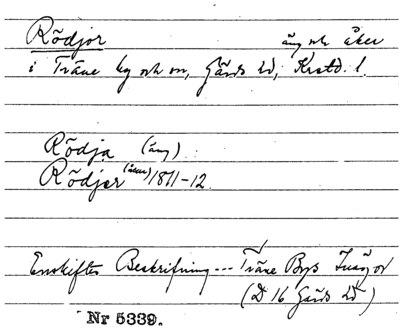 Rödjor äng och åker
i Träne by och sn, Gärds hd, Krstd. l.
Rödja (äng)
Rödjer (åker) 1811-12.
Enskiftes Beskrifning --- Träne Bys Inägor
(D 16 Gärds hd)
Nr 5339.